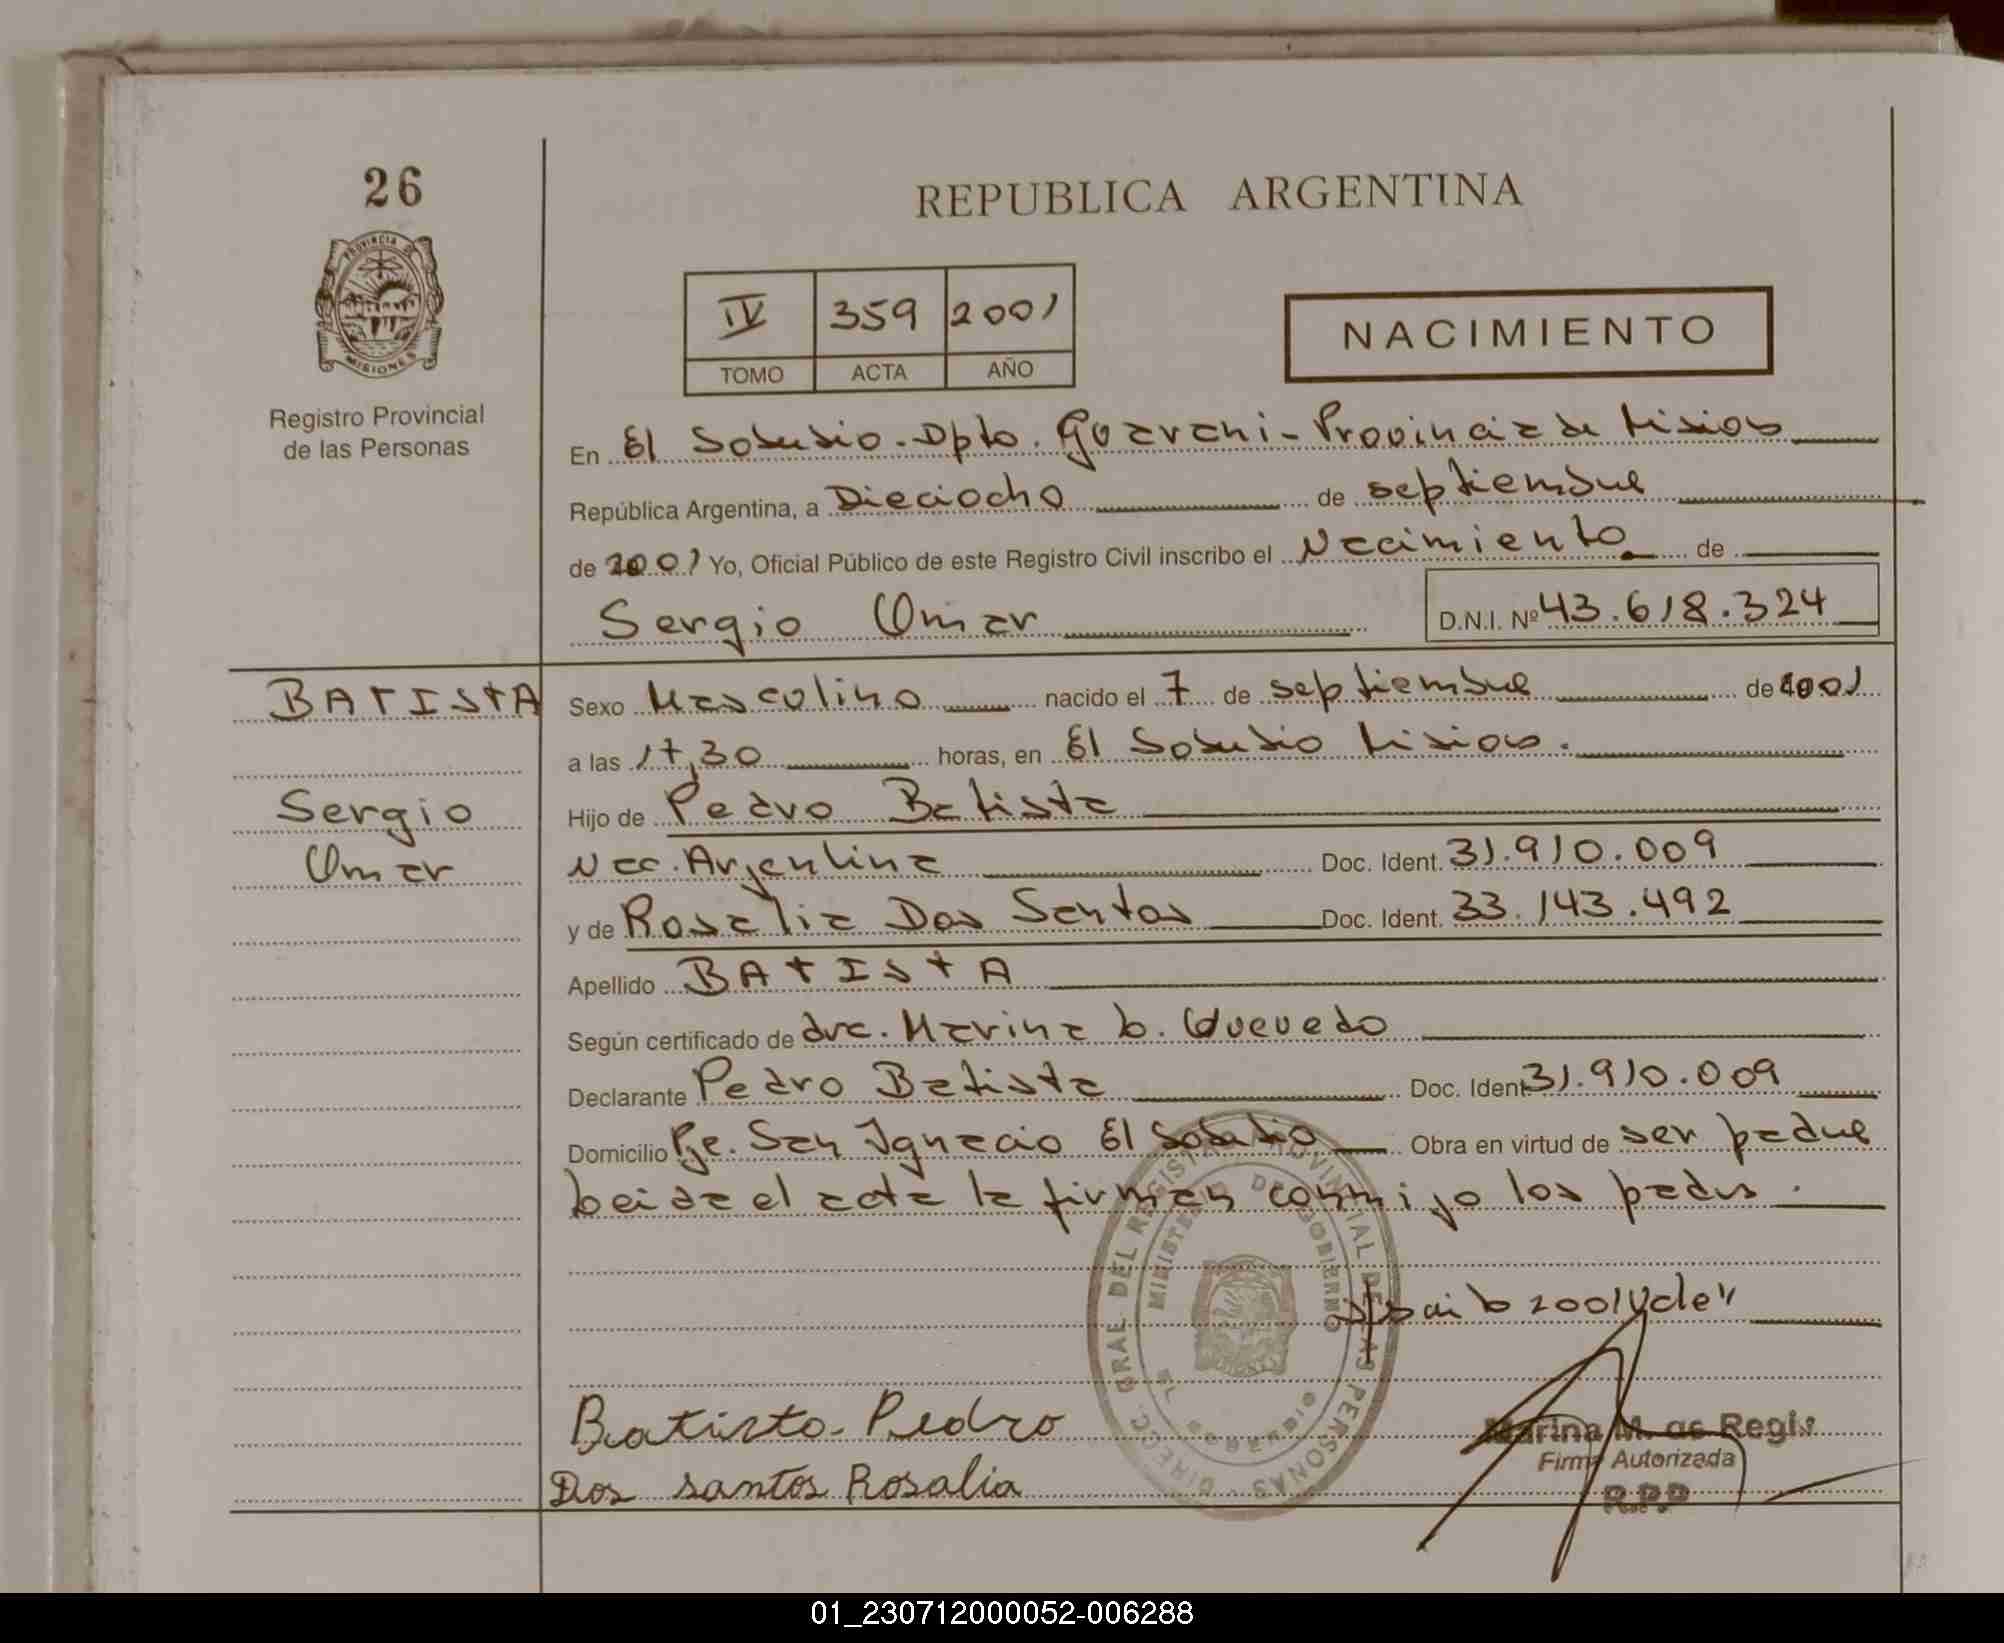 26
REPUBLICA ARGENTINA
PROVINCIA DE
MISIONES
Registro Provincial
de las Personas
IV 359 2001
TOMO ACTA AÑO
NACIMIENTO
En El Soberbio - Dpto. Guarani - Provincia de Misiones
República Argentina, a Dieciocho de septiembre
de 2001 Yo, Oficial Público de este Registro Civil inscribo el Nacimiento de
Sergio Omar D.N.I. Nº 43.618.324
BATISTA
Sergio
Omar
Sexo Masculino nacido el 7 de septiembre de 2001
a las 17,30 horas, en El Soberbio Misiones.
Hijo de Pedro Batista
Nac. Argentina Doc. Ident. 31.910.009
y de Rosalia Dos Santos Doc. Ident. 33.143.492
Apellido BATISTA
Según certificado de dra. Marina b. Quevedo
Declarante Pedro Batista Doc. Ident. 31.910.009
Domicilio Pje. San Ignacio El Soberbio Obra en virtud de ser padre
leida el acta la firman conmigo los padres.
2001 Vale"
DIRECC. GRAL DEL REGISTRO PROVINCIAL DE LAS PERSONAS
MINISTERIO DE GOBIERNO
EL SOBERBIO
Batista Pedro
Dos santos Rosalia
Marina M. de Regis
Firma Autorizada
R.P.P
01_230712000052-006288